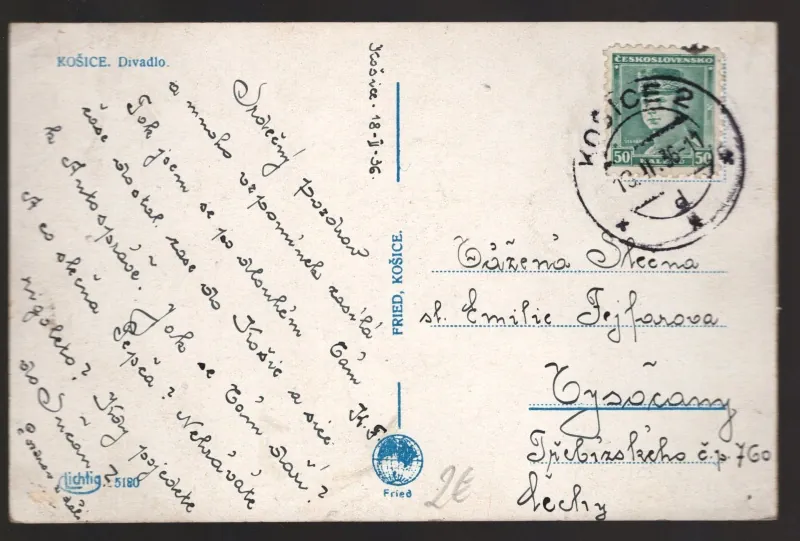 KOŠICE. Divadlo.
Košice. 18-II-36
Srdečný pozdrav
a mnoho vzpomínek zasílá
Vám K.F
Tak jsem se po dlouhém
zase dostal zase do Košic a sice
ku Autosprávě. Jak se Vám daří?
A co slečna Pepča? Nehráváte
Kdy pojedete
do
FRIED, KOŠICE.
Fried
lichtig 5180
ČESKOSLOVENSKO
50 50
KOŠICE 2
Vážená Slečna
sl. Emilie Fejfarova
Vysočany
Třebízského č.p. 760
Čechy
2€